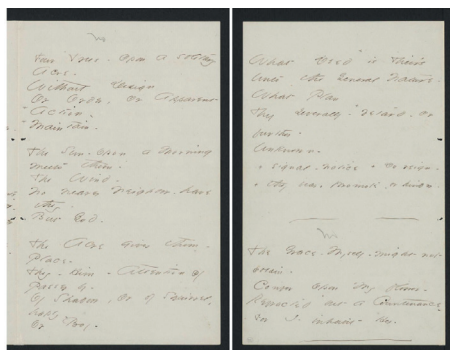 Four Trees - opon a solitary
Acre -
Without Design
Or Order, or Apparent
Action -
Maintain -
The Sun - opon a Morning
meets them -
The Wind -
No nearer Neighbor - have
they -
But God -
The Acre gives them -
Place -
They - Him - Attention of
Passer by -
Of Shadow, or of Squirrel,
haply -
Or Boy -
What Deed is Their's
unto the General Nature -
What Plan
They severally - retard - or
further -
Unknown -
+ signal - notice + Do reign -
The Grace - Myself - might not
obtain -
Confer opon My flower -
Refracted but a Countenance -
For I - inhabit - Her -